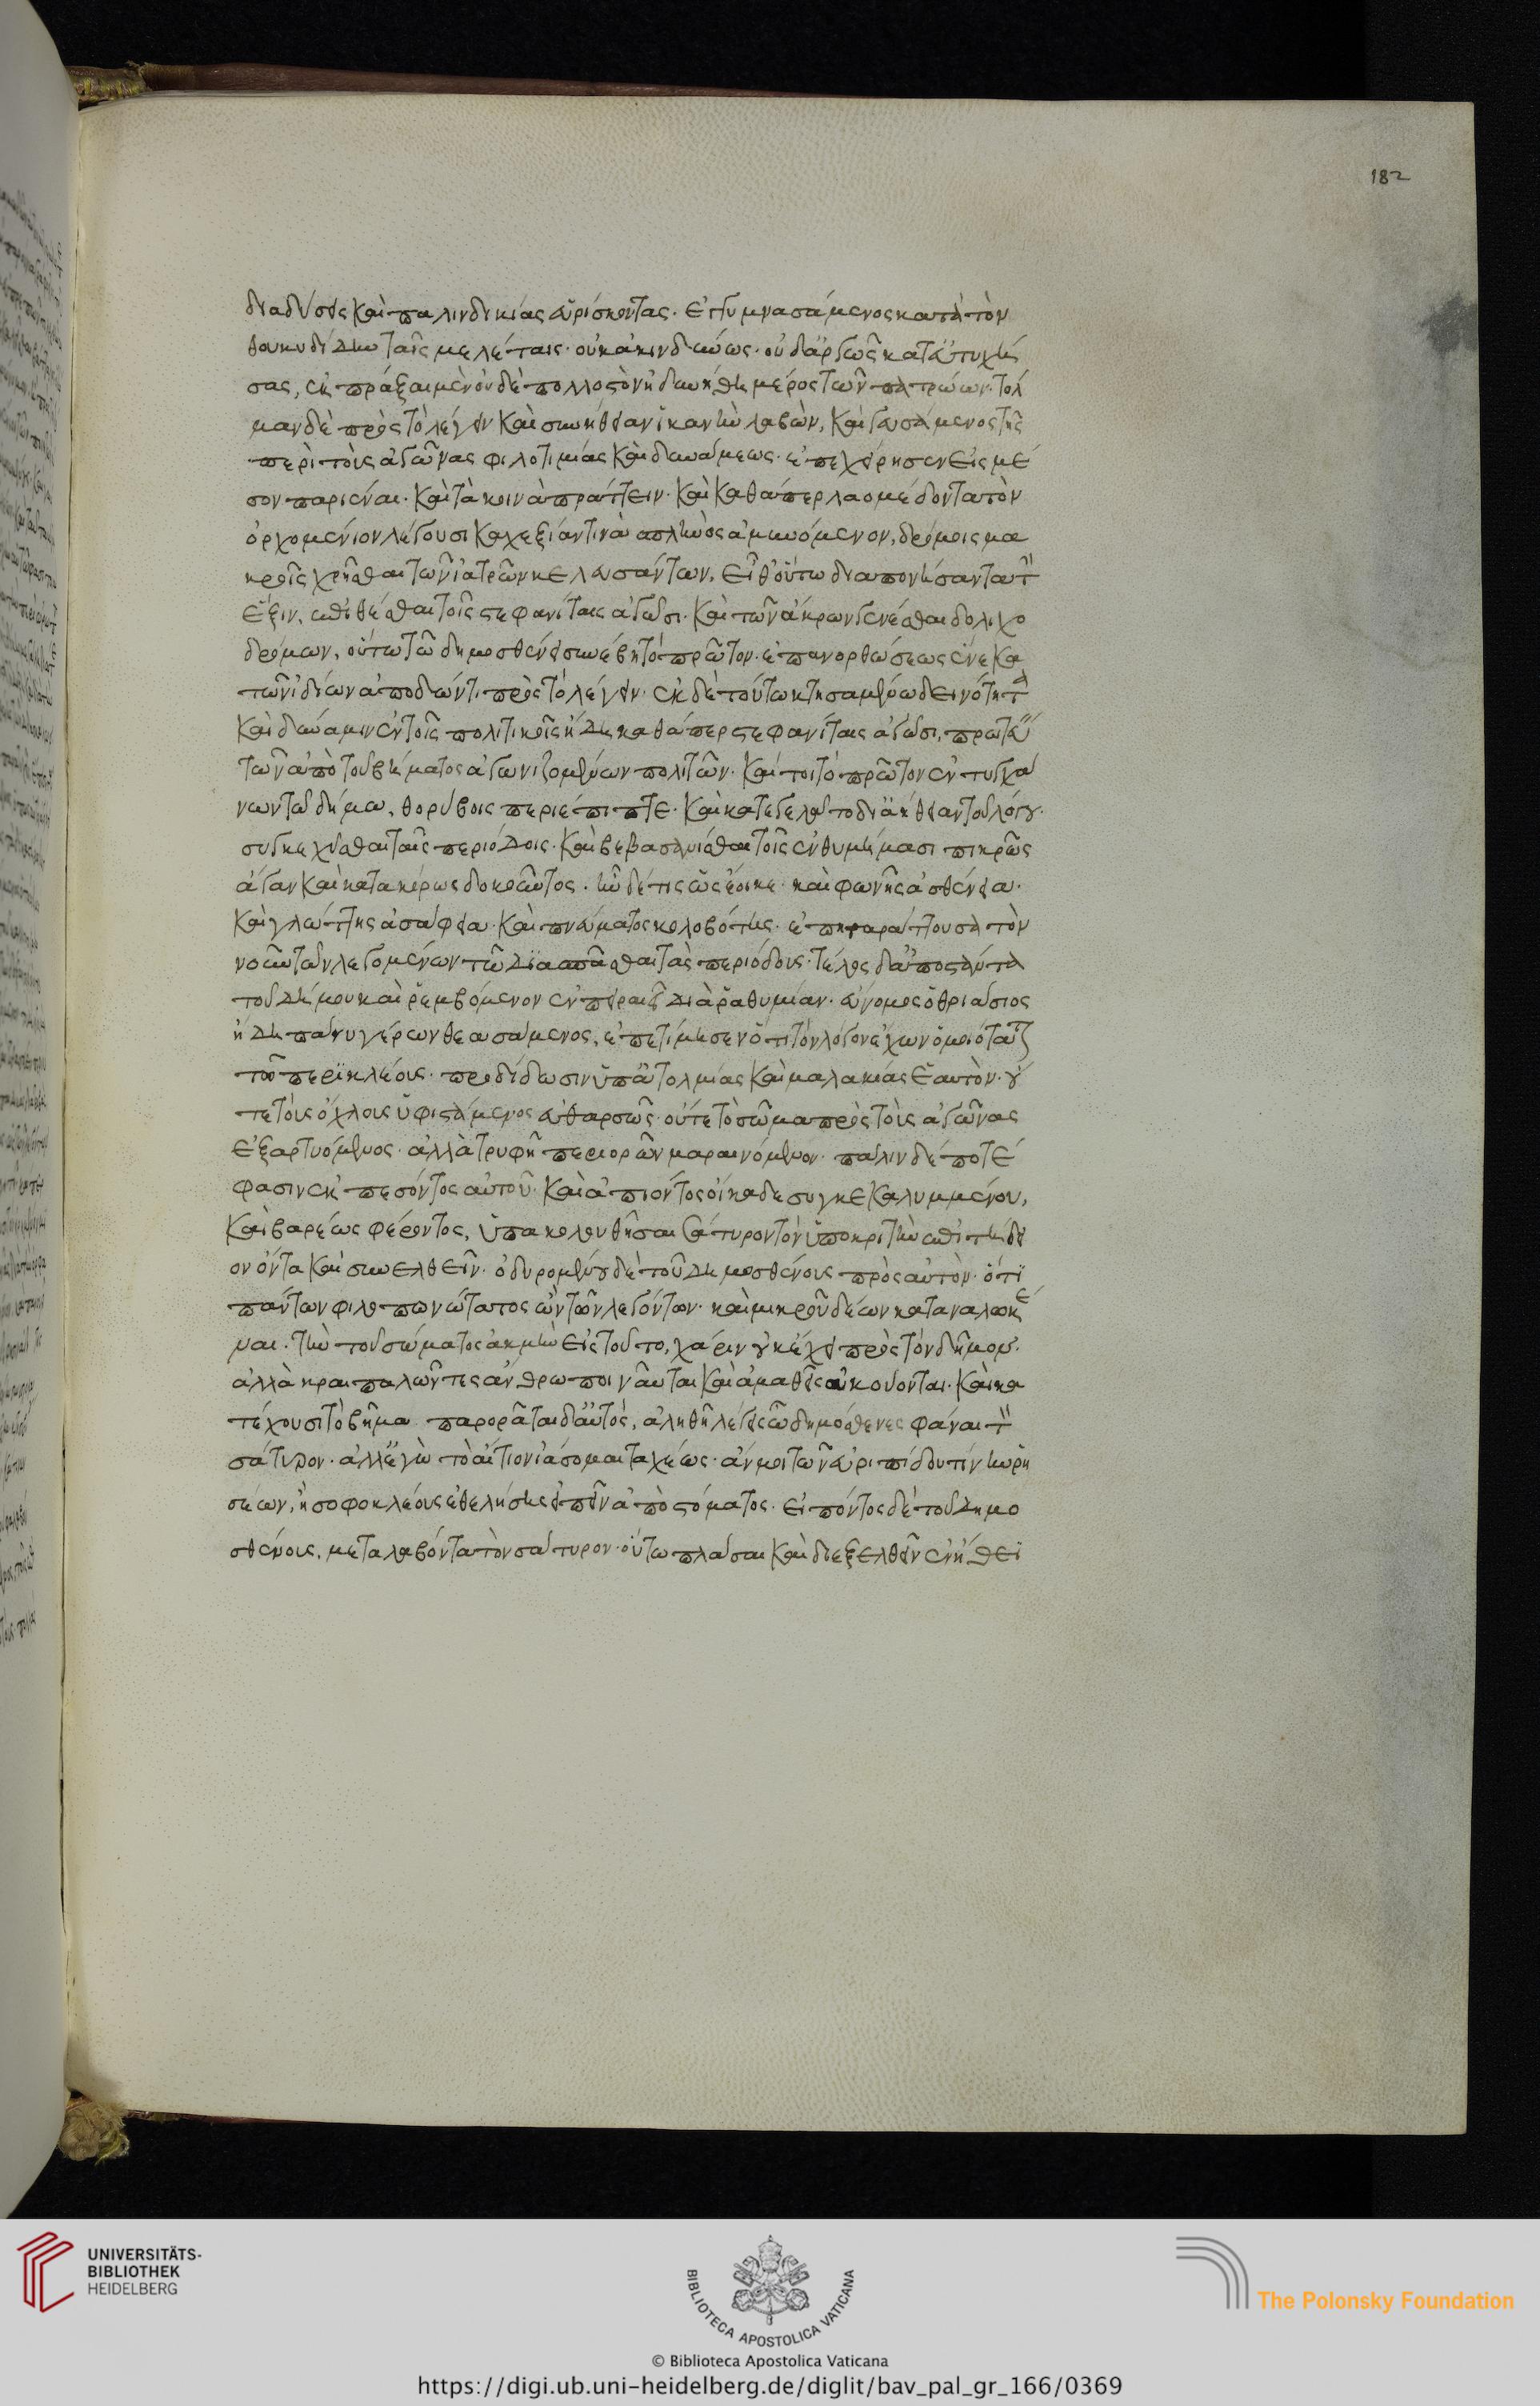 182
διαδύσεις καὶ παλινδικίας εὑρίσκοντας. ἐγγυμνασάμενος κατὰ τὸν
θουκυδίδην ταῖς μελέταις. οὐκ ἀκινδύνως. οὐδ' ἀργῶς κατευτυχή
σας, ἐκπράξαι μὲν οὐδὲ πολλοστὸν ἠδυνήθη μέρος τῶν πατρώων. τόλ
μαν δὲ πρὸς τὸ λέγειν καὶ συνήθειαν ἱκανὴν λαβὼν, καὶ γευσάμενος τῆς
περὶ τοὺς ἀγῶνας φιλοτιμίας καὶ δυνάμεως. ἐπεχείρησεν εἰς μέ
σον παριέναι. καὶ τὰ κοινὰ πράττειν. καὶ καθάπερ λαομέδοντα τὸν
ὀρχομένιον λέγουσι καχεξίαν τινὰ σπληνὸς ἀμυνόμενον, δρόμοις μα
κροῖς χρῆσθαι τῶν ἰατρῶν κελευσάντων, εἶθ' οὕτω διαπονήσαντα τὴν
ἕξιν, ἐπιθέσθαι τοῖς στεφανίταις ἀγῶσι. καὶ τῶν ἄκρων γενέσθαι δολιχο
δρόμων, οὕτω τῶ δημοσθένει συνέβη τὸ πρῶτον. ἐπανορθώσεως ἕνεκα
τῶν ἰδίων ἀποδύντι πρὸς τὸ λέγειν. ἐκ δὲ τούτου κτησαμένω δεινότητα
καὶ δύναμιν ἐν τοῖς πολιτικοῖς ἤδη καθάπερ στεφανίταις ἀγῶσι, πρωτεύειν
τῶν ἀπὸ τοῦ βήματος ἀγωνιζομένων πολιτῶν. καίτοι τὸ πρῶτον ἐντυγχά
νων τῶ δήμω, θορύβοις περιέπιπτε. καὶ κατεγελᾶτο δι' ἀήθειαν τοῦ λόγου.
συγκεχύσθαι ταῖς περιόδοις. καὶ βεβασανίσθαι τοῖς ἐνθυμήμασι πικρῶς
ἄγαν καὶ κατακόρως δοκοῦντος. ἦν δέ τις ὡς ἔοικε. καὶ φωνῆς ἀσθένεια.
καὶ γλώττης ἀσάφεια. καὶ πνεύματος κολοβότης. ἐπιταράττουσα τὸν
νοῦν τῶν λεγομένων τῶ διασπᾶσθαι τὰς περιόδους. τέλος δ' ἀποστάντα
τοῦ δήμου καὶ ῥεμβόμενον ἐν πειραιεῖ διὰ ῥαθυμίαν. εὔνομος ὁ θριάσιος
ἤδη πάνυ γέρων θεασάμενος, ἐπετίμησεν ὅτι τὸν λόγον ἔχων ὁμοιότατον
τῶ περικλέους. προδίδωσιν ὑπ' ἀτολμίας καὶ μαλακίας ἑαυτὸν. οὔ
τε τοὺς ὄχλους ὑφιστάμενος εὐθαρσῶς. οὔτε τὸ σῶμα πρὸς τοὺς ἀγῶνας
ἐξαρτυόμενος. ἀλλὰ τρυφῆ περιορῶν μαραινόμενον. πάλιν δέ ποτέ
φασιν ἐκπεσόντος αὐτοῦ. καὶ ἀπιόντος οἴκαδε συγκεκαλυμμένου,
καὶ βαρέως φέροντος, ὑπακολουθῆσαι σάτυρον τὸν ὑποκριτὴν ἐπιτήδει
ον ὄντα καὶ συνελθεῖν. ὀδυρομένου δὲ τοῦ δημοσθένους πρὸς αὐτὸν. ὅτι
πάντων φιλοπονώτατος ὢν τῶν λεγόντων. καὶ μικροῦ δέων καταναλωκέ
ναι. τὴν τοῦ σώματος ἀκμὴν εἰς τοῦτο, χάριν οὐκ ἔχει πρὸς τὸν δῆμον.
ἀλλὰ κραιπαλῶντες ἄνθρωποι ναῦται καὶ ἀμαθεῖς ἀκούονται. καὶ κα
τέχουσι τὸ βῆμα. παρορᾶται δ' αὐτός, ἀληθῆ λέγεις ὦ δημόσθενες φάναι τὸν
σάτυρον. ἀλλ' ἐγὼ τὸ αἴτιον ἰάσομαι ταχέως. ἄν μοι τῶν εὐριπίδου τινὰ ῥή
σεων, ἢ σοφοκλέους ἐθελήσης εἰπεῖν ἀπὸ στόματος. εἰπόντος δὲ τοῦ δημο
σθένους, μεταλαβόντα τὸν σάτυρον. οὕτω πλάσαι καὶ διεξελθεῖν ἐν ἤθει
UNIVERSITÄTS-
BIBLIOTHEK
HEIDELBERG
BIBLIOTECA APOSTOLICA VATICANA
© Biblioteca Apostolica Vaticana
The Polonsky Foundation
https://digi.ub.uni-heidelberg.de/diglit/bav_pal_gr_166/0369